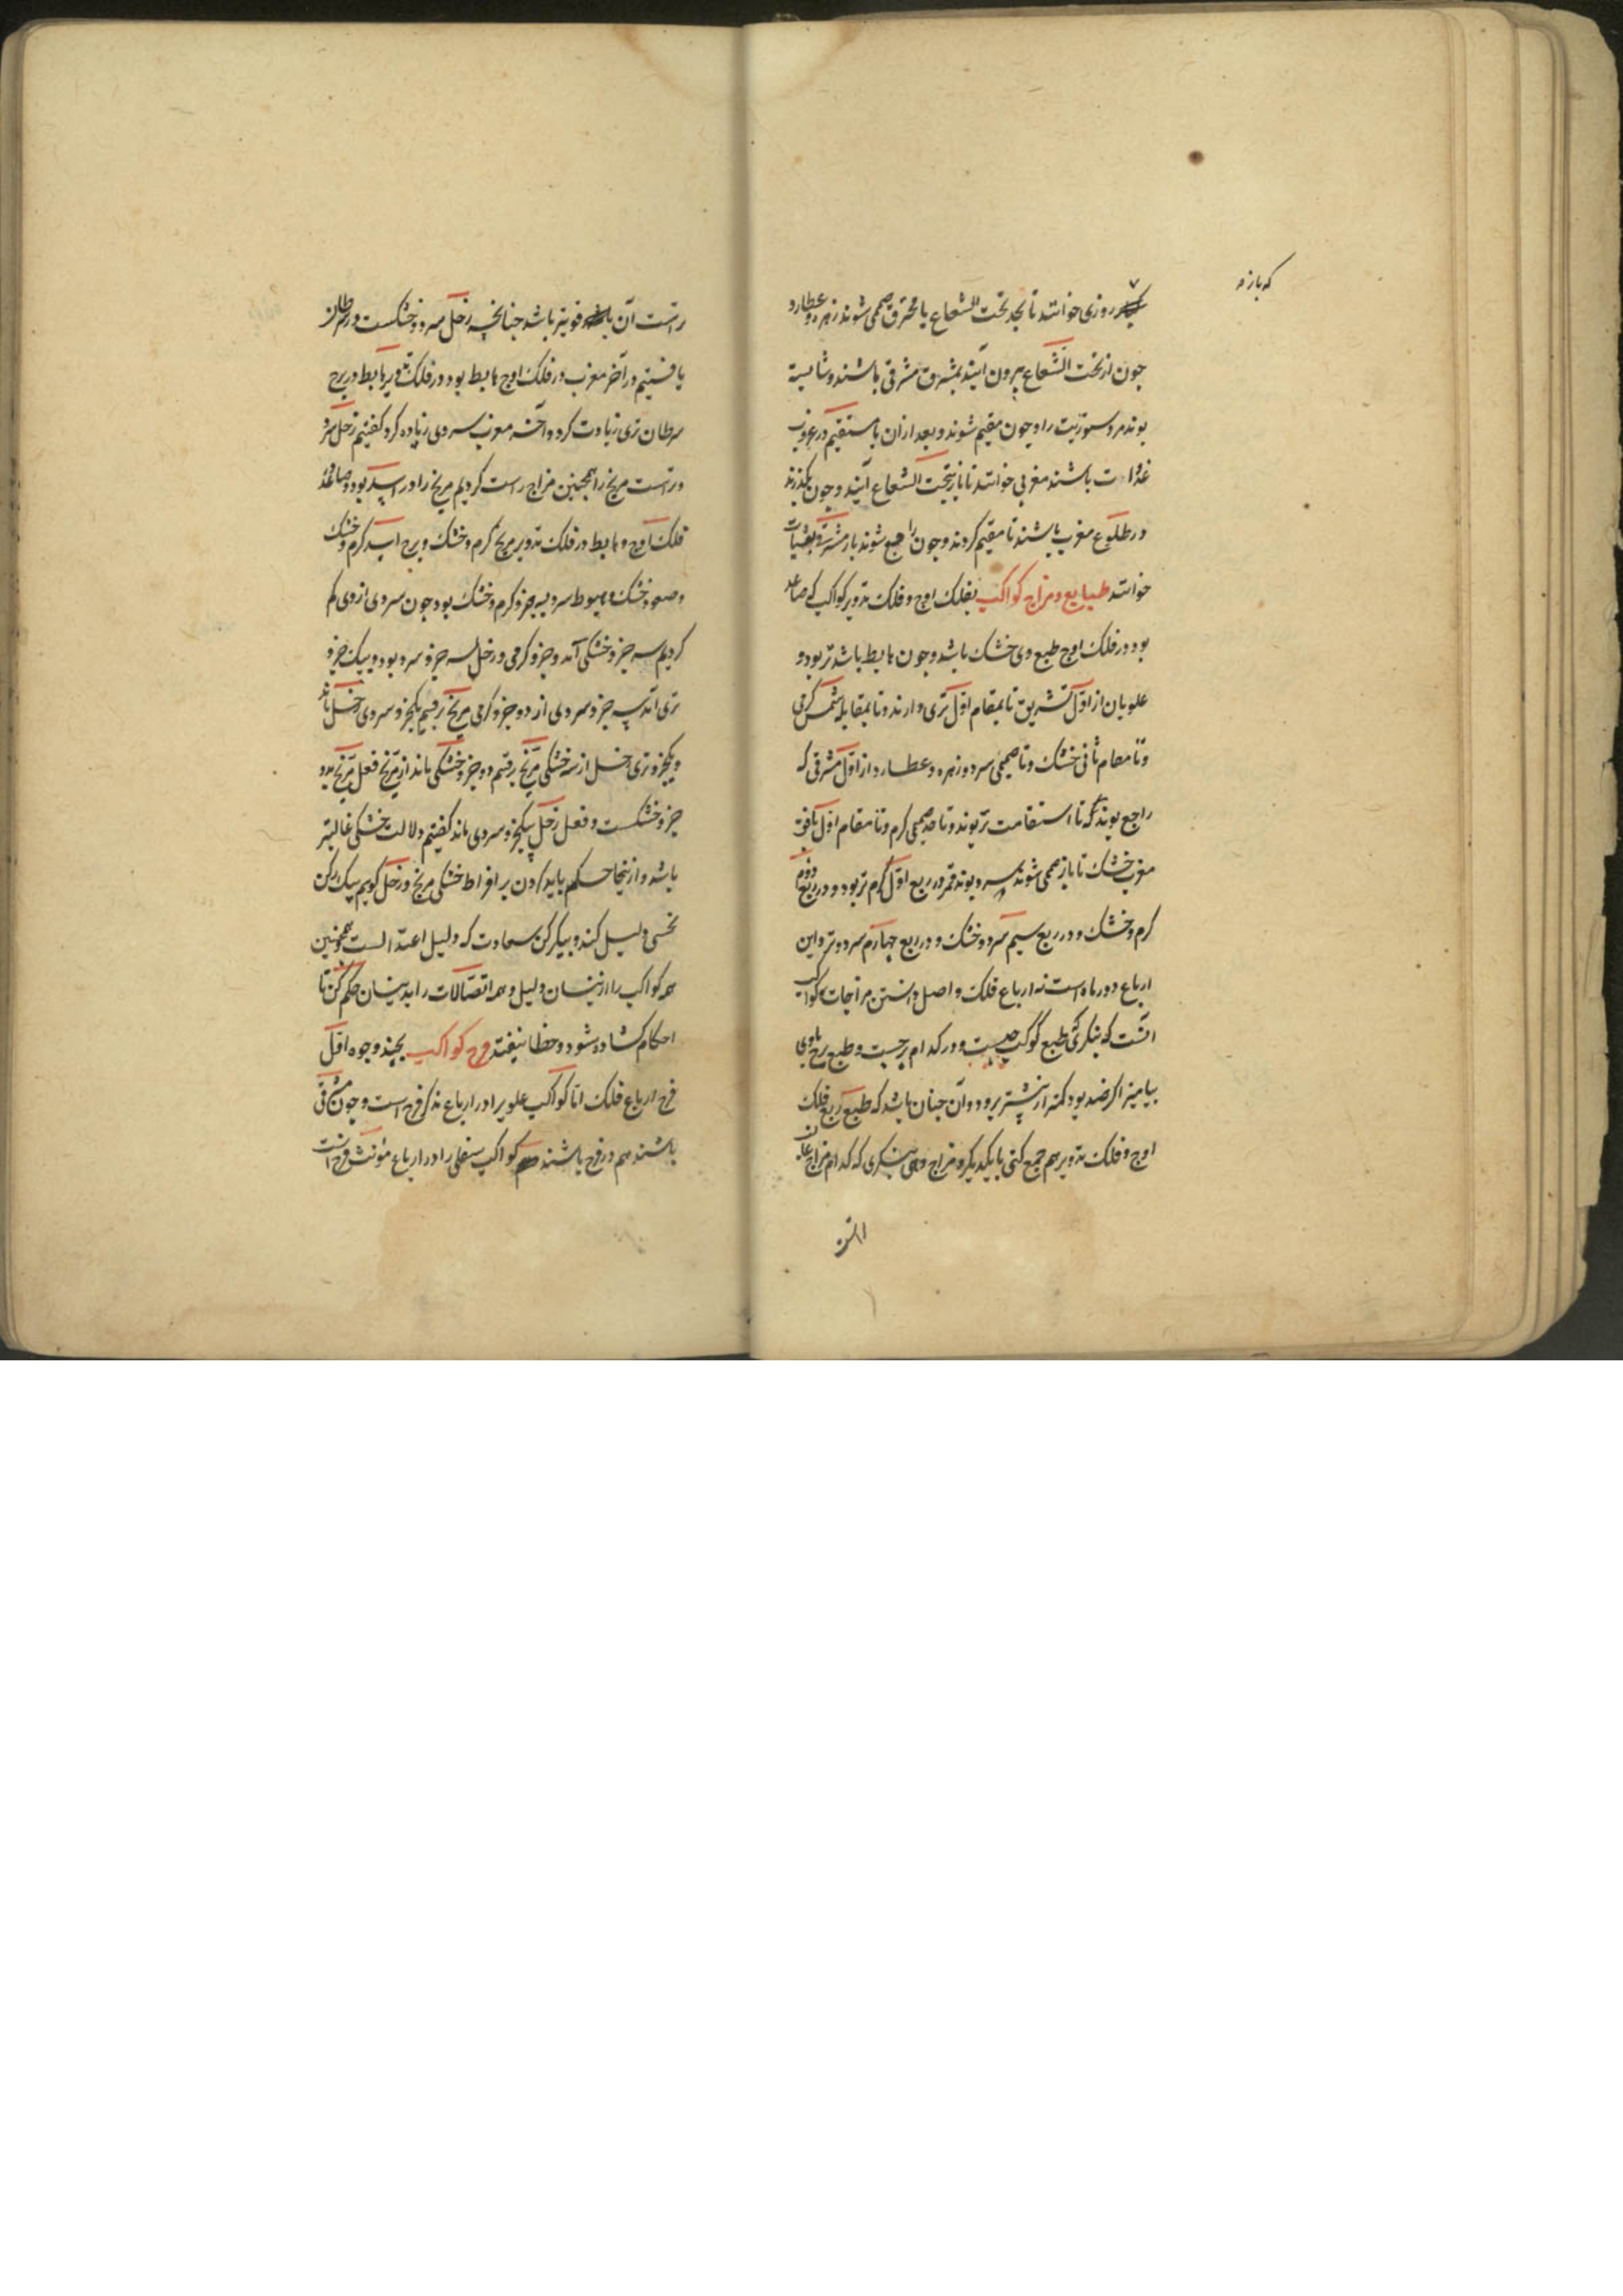 که بازه
روزی خوانند تا بحد تحت الشعاع یا محترق صمیمی شوند زهره و عطارد
چون از تحت الشعاع بیرون آیند بمشرق مشرقی باشند و شایسته
بوند مر دستوریت را و چون مقیم شوند و بعد ازان یا مستقیم در غروب
باشند مغربی خوانند تا باز بتحت الشعاع آیند و چون بگذرند
در طلوع مغرب باشند تا مقیم گردند و چون راجع شوند باز مشرقی
خوانند طبایع و مزاج کواکب بفلک اوج و فلک تدویر کواکب کی صاعد
بود در فلک اوج طبع وی خشک باشد و چون هابط باشد تر بود و
علویان از اول تشریق تا بمقام اول تری دارند و تا بمقابله شمس گرمی
و تا مقام ثانی خشک و تا صمیمی سرد و زهره و عطارد از اول مشرقی که
راجع بوند که تا استقامت تر بوند و تا حد صمیمی گرم و تا مقام اول بافق
مغرب خشک تا باز صمیمی شوند سرد بوند قمر در ربع اول گرم تر بود و در ربع دوم
گرم و خشک و در ربع سیم سرد و خشک و در ربع چهارم سرد و تر و این
ارباع دور ماه است نه ارباع فلک و اصل دانستن مزاجات کواکب
آنست که بنگری طبع کوکب چیست و در کدام برجست و طبع برج باوی
بیامیز اگر ضد بود کمتر از بیشتر برود و آن چنان باشد که طبع ربع فلک
اوج و فلک تدویر هم جمع کنی با یکدیگر و مزاج دهی بنگری که کدام مزاج غالب
راست آن قویتر باشد چنانچه زحل سرد و خشکست در سرطان
یافتیم در آخر مغرب در فلک اوج هابط بود در فلک تدویر هابط در برج
سرطان تری زیادت کرد و آخر مغرب سردی زیاده کرد گفتیم زحل سرد
و تر است مریخ را همچنین مزاج راست کردیم مریخ را در اسد بود و صاعد
فلک اوج و هابط در فلک تدویر مریخ گرم و خشک و برج اسد گرم و خشک
و صعود خشک و هبوط سرد سه جزو گرم و خشک بود چون سردی از وی کم
کردیم سه جزو خشکی آمد و جزو گرمی و زحل سه جزو سرد بود و یک جزو
تری آمد سه جزو سردی از دو جزو گرمی مریخ برفتیم یکجزو سردی زحل بماند
و یکجزو تری زحل از سه خشکی مریخ برفتیم دو جزو خشکی بماند از مریخ فعل مریخ بدو
جزو خشکست و فعل زحل بیکجزو سردی ماند گفتیم دلالت خشکی غالبتر
باشد و ازینجا حکم باید کردن بر افراط خشکی مریخ و زحل گوییم یک رکن
نحسی دلیل کند و دیگر رکن سعادت که دلیل اعتدالست و همچنین
همه کواکب را ازینسان دلیل و همه اتصالات را بدینسان حکم کن تا
احکام گشاده شود و خطا نیفتد فرح کواکب بچند وجوه اول
فرح ارباع فلک اما کواکب علویرا در ارباع مذکر فرح است و چون مشرقی
باشند هم در فرح باشند کواکب سفلی را در ارباع مؤنث فرح است